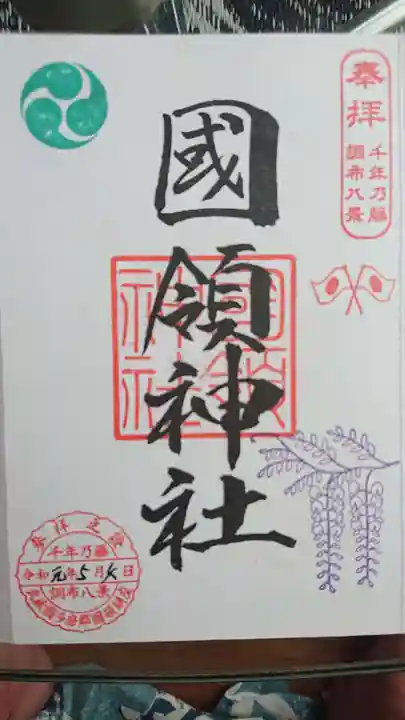 奉拝
千年乃藤
調布八景
國領神社
國領神社
参拝之證
千年乃藤
令和元年5月4日
調布八景